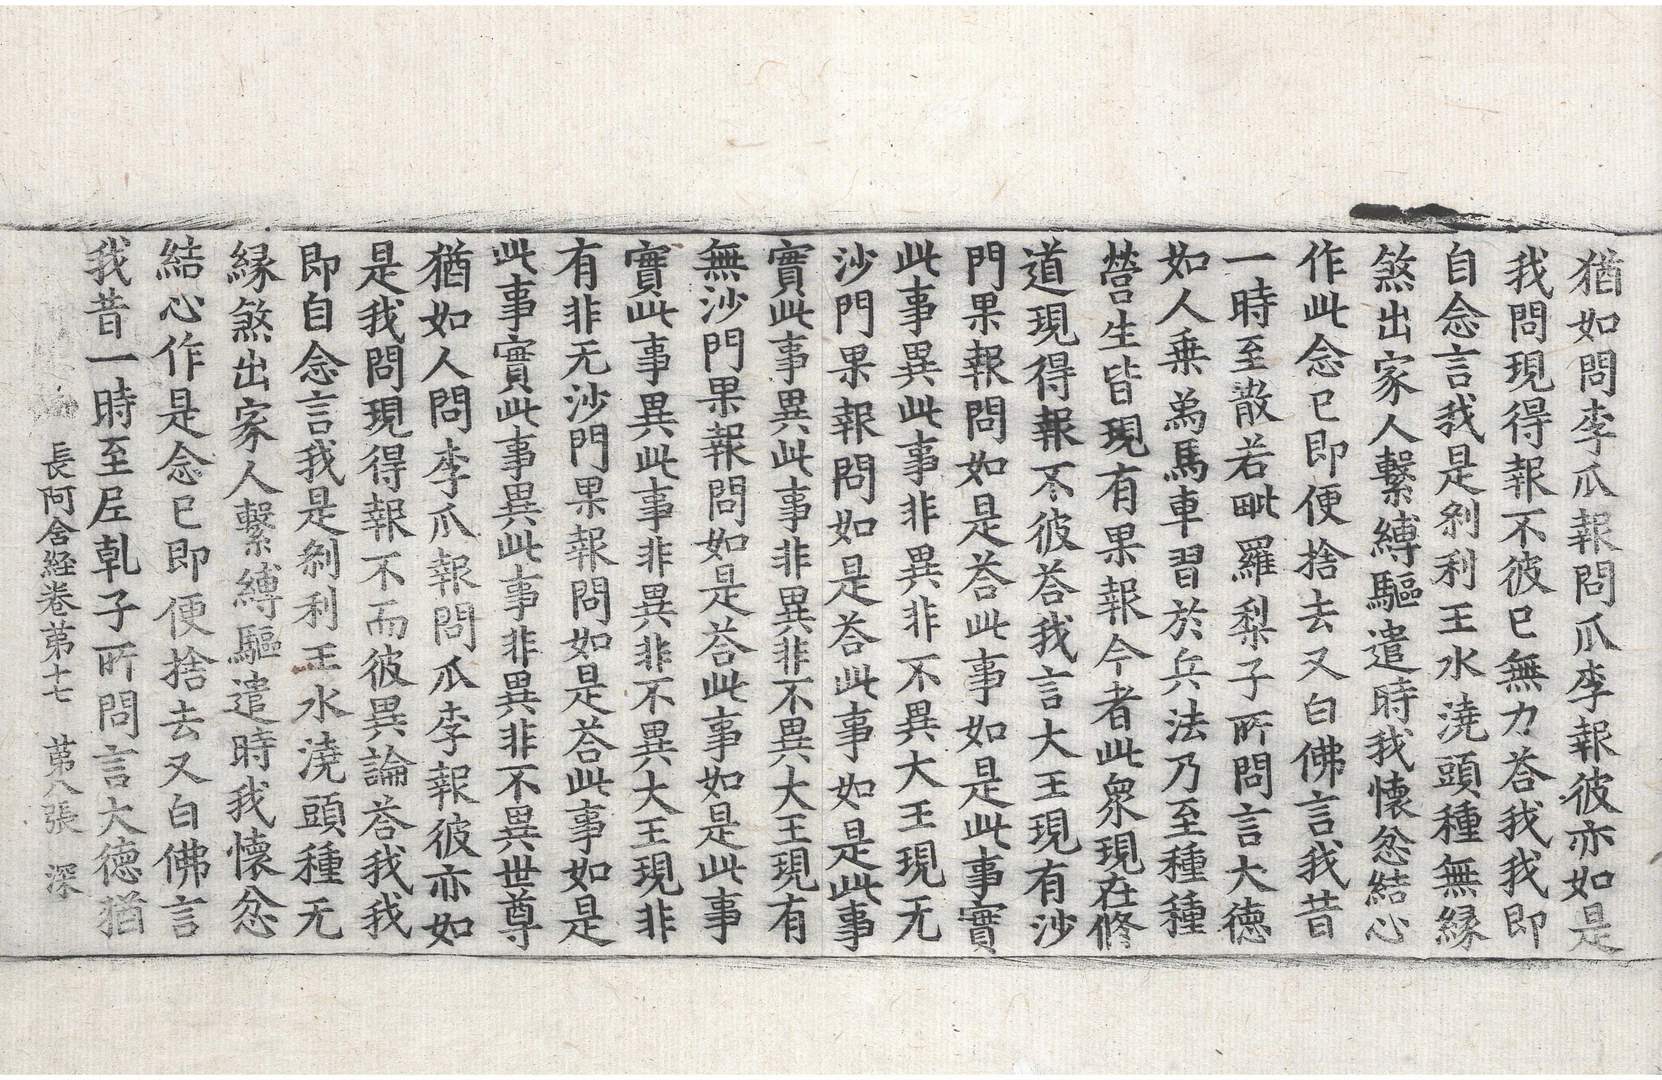 猶如問李瓜報問瓜李報彼亦如是
我問現得報不彼已無力荅我我即
自念言我是刹利王水澆頭種無緣
煞出家人繫縛驅遣時我懷忿結心
作此念已即便捨去又白佛言我昔
一時至散若毗羅梨子所問言大德
如人乗象馬車習於兵法乃至種種
營生皆現有果報今者此衆現在修
道現得報不彼荅我言大王現有沙
門果報問如是荅此事如是此事實
此事異此事非異非不異大王現无
沙門果報問如是荅此事如是此事
實此事異此事非異非不異大王現有
無沙門果報問如是荅此事如是此事
實此事異此事非異非不異大王現非
有非无沙門果報問如是荅此事如是
此事實此事異此事非異非不異世尊
猶如人問李瓜報問瓜李報彼亦如
是我問現得報不而彼異論荅我我
即自念言我是刹利王水澆頭種无
緣煞出家人繫縛驅遣時我懷忿
結心作是念已即便捨去又白佛言
我昔一時至尼乹子所問言大德猶
長阿含経卷苐十七 苐八張 深